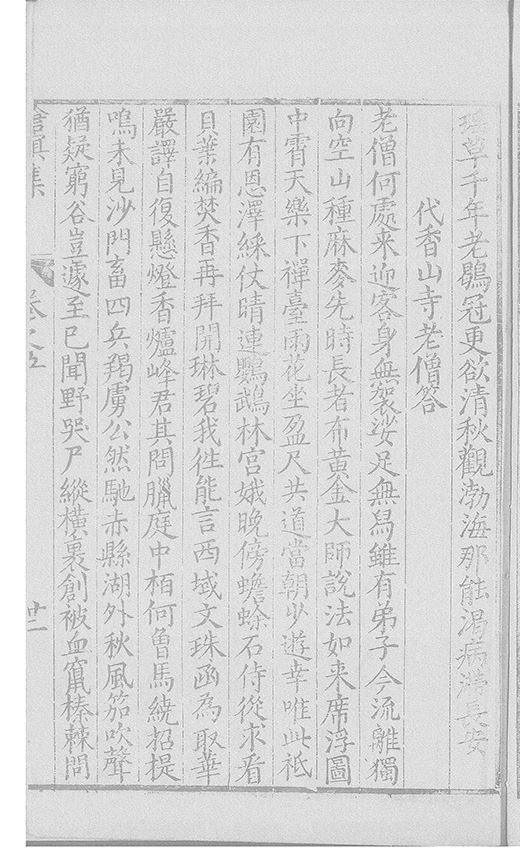 瑤草千年老鶡冠更欲清秋觀渤海那能渴病滯長安
代香山寺老僧答
老僧何處来迎客身無袈裟足無舄雖有弟子今流離獨
向空山種麻麥先時長者布黃金大師說法如来席浮圖
中霄天樂下禪臺雨花坐盈尺共道當朝少遊幸唯此祗
園有恩澤綵仗晴連鸚鵡林宮娥晚傍蟾蜍石侍從求看
貝葉編焚香再拜開琳碧我徃能言西域文珠函為取華
嚴譯自復懸燈香爐峰君其問臘庭中栢何魯馬繞招提
鳴未見沙門畜四兵羯虜公然馳赤縣湖外秋風笳吹聲
猶疑窮谷豈遽至已聞野哭尸縱橫裹創被血竄榛棘問
集
卷之五
廿二